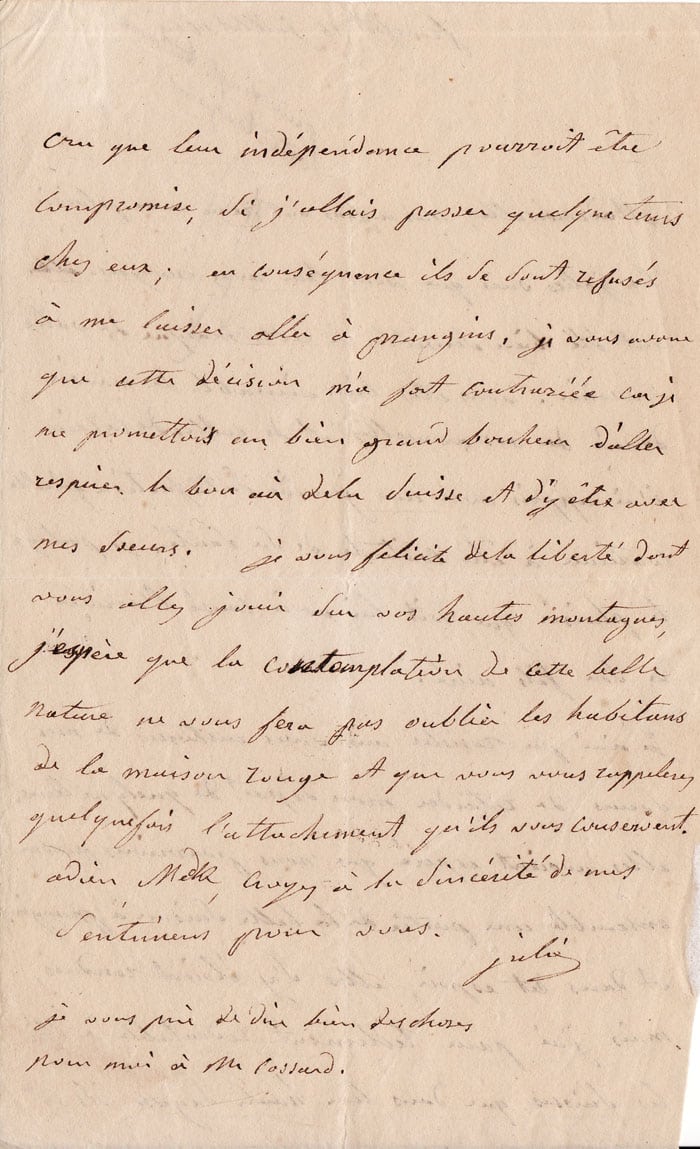 cru que leur indépendance pourroit être
compromise, si j'allais passer quelque tems
chez eux; en conséquence ils se sont refusés
à me laisser aller à prangins, je vous avoue
que cette décision m'a fort contrariée car je
me promettois un bien grand bonheur d'aller
respirer le bon air de la Suisse et d'y être avec
mes sœurs. je vous felicite de la liberté dont
vous allez jouir sur vos hautes montagnes,
j'espère que la contemplation de cette belle
nature ne vous fera pas oublier les habitans
de la maison rouge et que vous vous rappelerez
quelquefois l'attachement qu'ils vous conservent.
adieu Melle, croyez à la sincérité de mes
sentimens pour vous.
julie
je vous prie de dire bien des choses
pour moi à Mr Cossard.